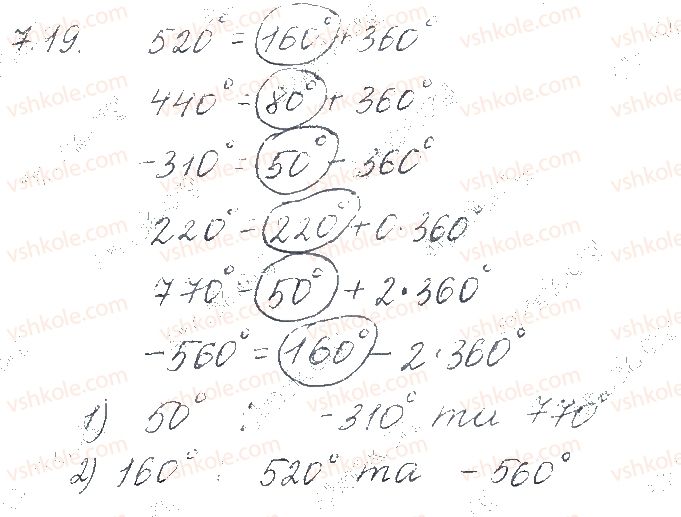 7.19. 520° = 160° + 360°
440° = 80° + 360°
-310° = 50° - 360°
220° = 220° + 0·360°
770° = 50° + 2·360°
-560° = 160° - 2·360°
1) 50° : -310° та 770°
2) 160° : 520° та -560°